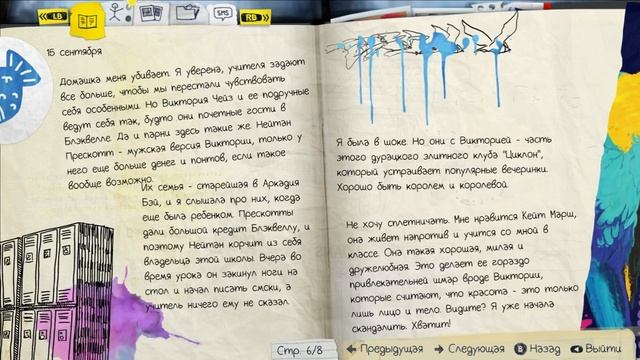 LB
SMS
RB
15 сентября
Домашка меня убивает. Я уверена, учителя задают
все больше, чтобы мы перестали чувствовать
себя особенными. Но Виктория Чейз и ее подручные
ведут себя так, будто они почетные гости в
Блэквелле. Да и парни здесь такие же. Нейтан
Прескотт - мужская версия Виктории, только у
него еще больше денег и понтов, если такое
вообще возможно.
Их семья - старейшая в Аркадия
Бэй, и я слышала про них, когда
еще была ребенком. Прескотты
дали большой кредит Блэквеллу, и
поэтому Нейтан корчит из себя
владельца этой школы. Вчера во
время урока он закинул ноги на
стол и начал писать смски, а
учитель ничего ему не сказал.
Я была в шоке. Но они с Викторией - часть
этого дурацкого элитного клуба "Циклон",
который устраивает популярные вечеринки.
Хорошо быть королем и королевой.
Не хочу сплетничать. Мне нравится Кейт Марш,
она живет напротив и учится со мной в
классе. Она такая хорошая, милая и
дружелюбная. Это делает ее гораздо
привлекательней шмар вроде Виктории,
которые считают, что красота - это только
лишь лицо и тело. Видите? Я уже начала
скандалить. Хватит!
Стр. 6/8
Предыдущая
Следующая
B Назад
Выйти